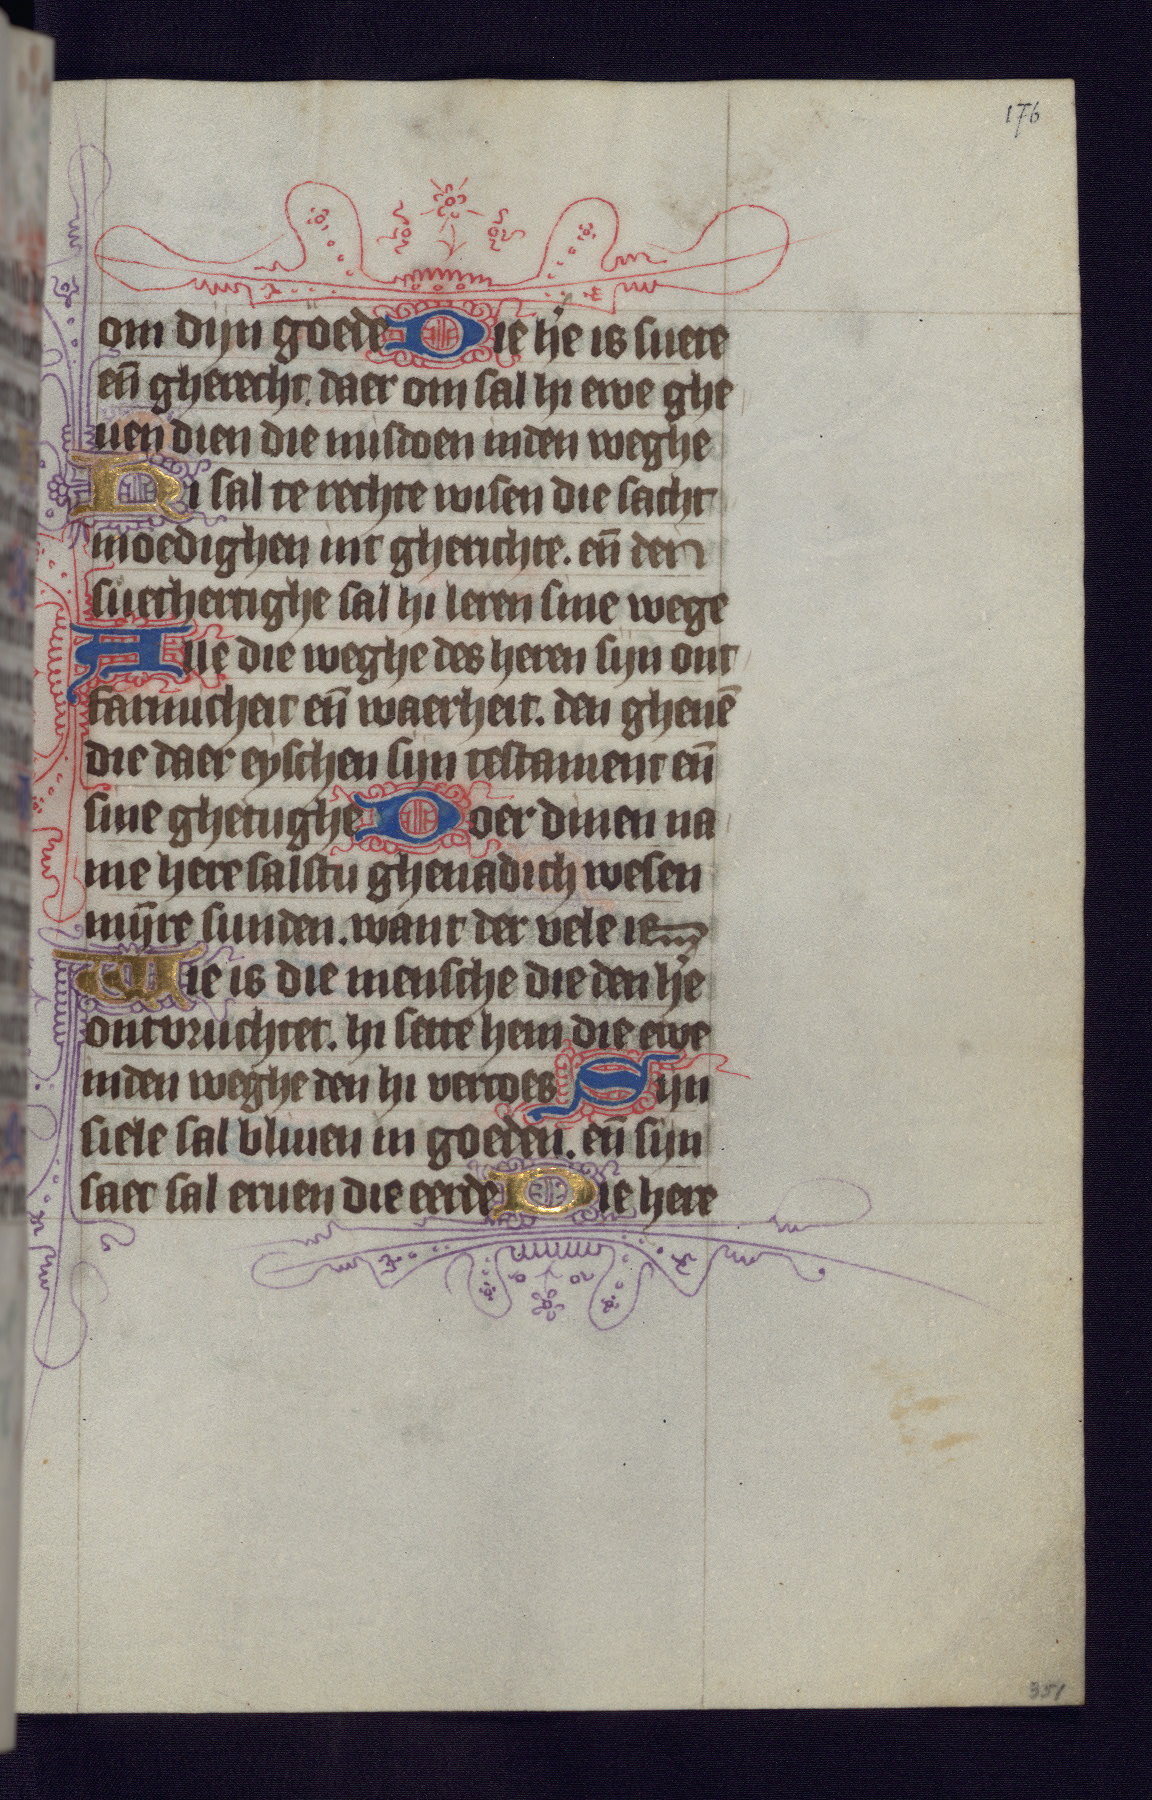 176
om dijn goede Die h'e is suete
en̄ gherecht. daer om sal hi ewe ghe
uen dien die misdoen inden weghe
Hi sal te rechte wisen die sacht
moedighen int gherichte. en̄ den
suethertighe sal hi leren sine wege
Alle die weghe des heren sijn ont
farmicheit en̄ waerheit. den ghenē
die daer eyschen sijn testament en̄
sine ghetughe Doer dinen na
me here salstu ghenadich wesen
mȳre sunden. want der vele is
Wie is die mensche die den h'e
ontvruchtet. hi sette hem die ewe
inden weghe den hi vercoes Sijn
siele sal bliuen in goeden. en̄ sijn
saet sal eruen die eerde Die here
351